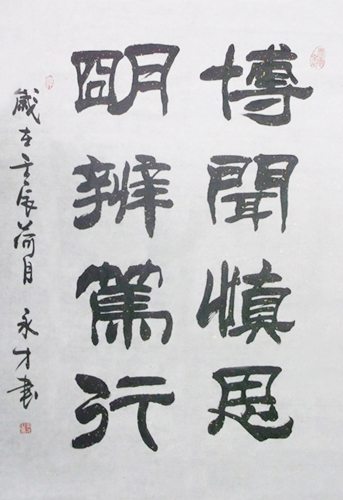 博聞慎思
明辨篤行
歲在壬辰荷月 永才書